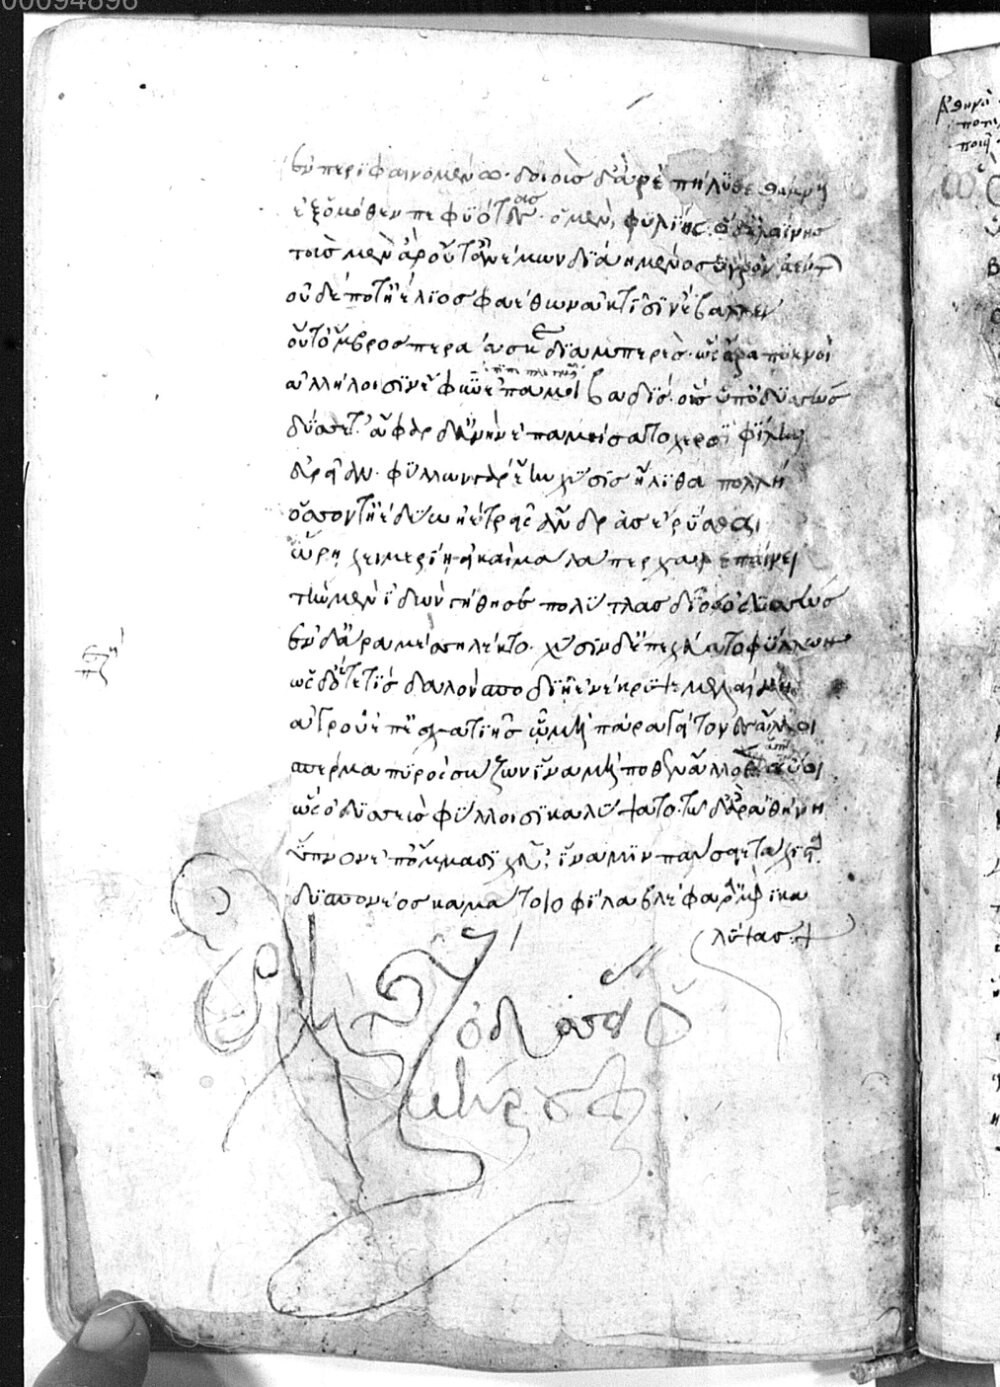 00094896
ἐν περιφαινομένω· δοιοὺς δ' ἄρ' ἐπήλυθε θάμνους
ἐξ ὁμόθεν πεφυῶτας· ὁ μὲν, φυλίης· ὁ δ' ἐλαίης
τοὺς μὲν ἄρ' οὔτ' ἀνέμων διάη μένος ὑγρὸν ἀέντων
οὐδέ ποτ' ἠέλιος φαέθων ἀκτῖσιν ἔβαλλεν
οὔτ' ὄμβρος περάασκε διαμπερές· ὣς ἄρα πυκνοὶ
ἀλλήλοισιν ἔφυν ἐπαμοιβαδίς· οὓς ὑπ' ὀδυσσεὺς
δύσετ'· ἄφαρ δ' εὐνὴν ἐπαμήσατο χερσὶ φίλησιν
εὐρεῖαν· φύλλων γὰρ ἔην χύσις ἤλιθα πολλὴ
ὅσσον τ' ἠὲ δύω ἠὲ τρεῖς ἄνδρας ἔρυσθαι
ὥρη χειμερίη· εἰ καὶ μάλα περ χαλεπαίνει
τὴν μὲν ἰδὼν γήθησε πολύτλας δῖος ὀδυσσεὺς
ἐν δ' ἄρα μέσση λέκτο· χύσιν δ' ἐπεχεύατο φύλλων
ὡς δ' ὅτε τίς δαλὸν σποδιῇ ἐνέκρυψε μελαίνῃ
ἀγροῦ ἐπ' ἐσχατιῆς ᾧ μὴ πάρα γείτονες ἄλλοι
σπέρμα πυρὸς σώζων ἵνα μή ποθεν ἄλλοθεν αὕοι
ὣς ὀδυσεὺς φύλλοισι καλύψατο· τῷ δ' ἄρ' ἀθήνη
ὕπνον ἐπ' ὄμμασι χεῦ', ἵνα μιν παύσειε τάχιστα
δυσπονέος καμάτοιο φίλα βλέφαρ' ἀμφικα
λύψας·+
ὀδυσσε